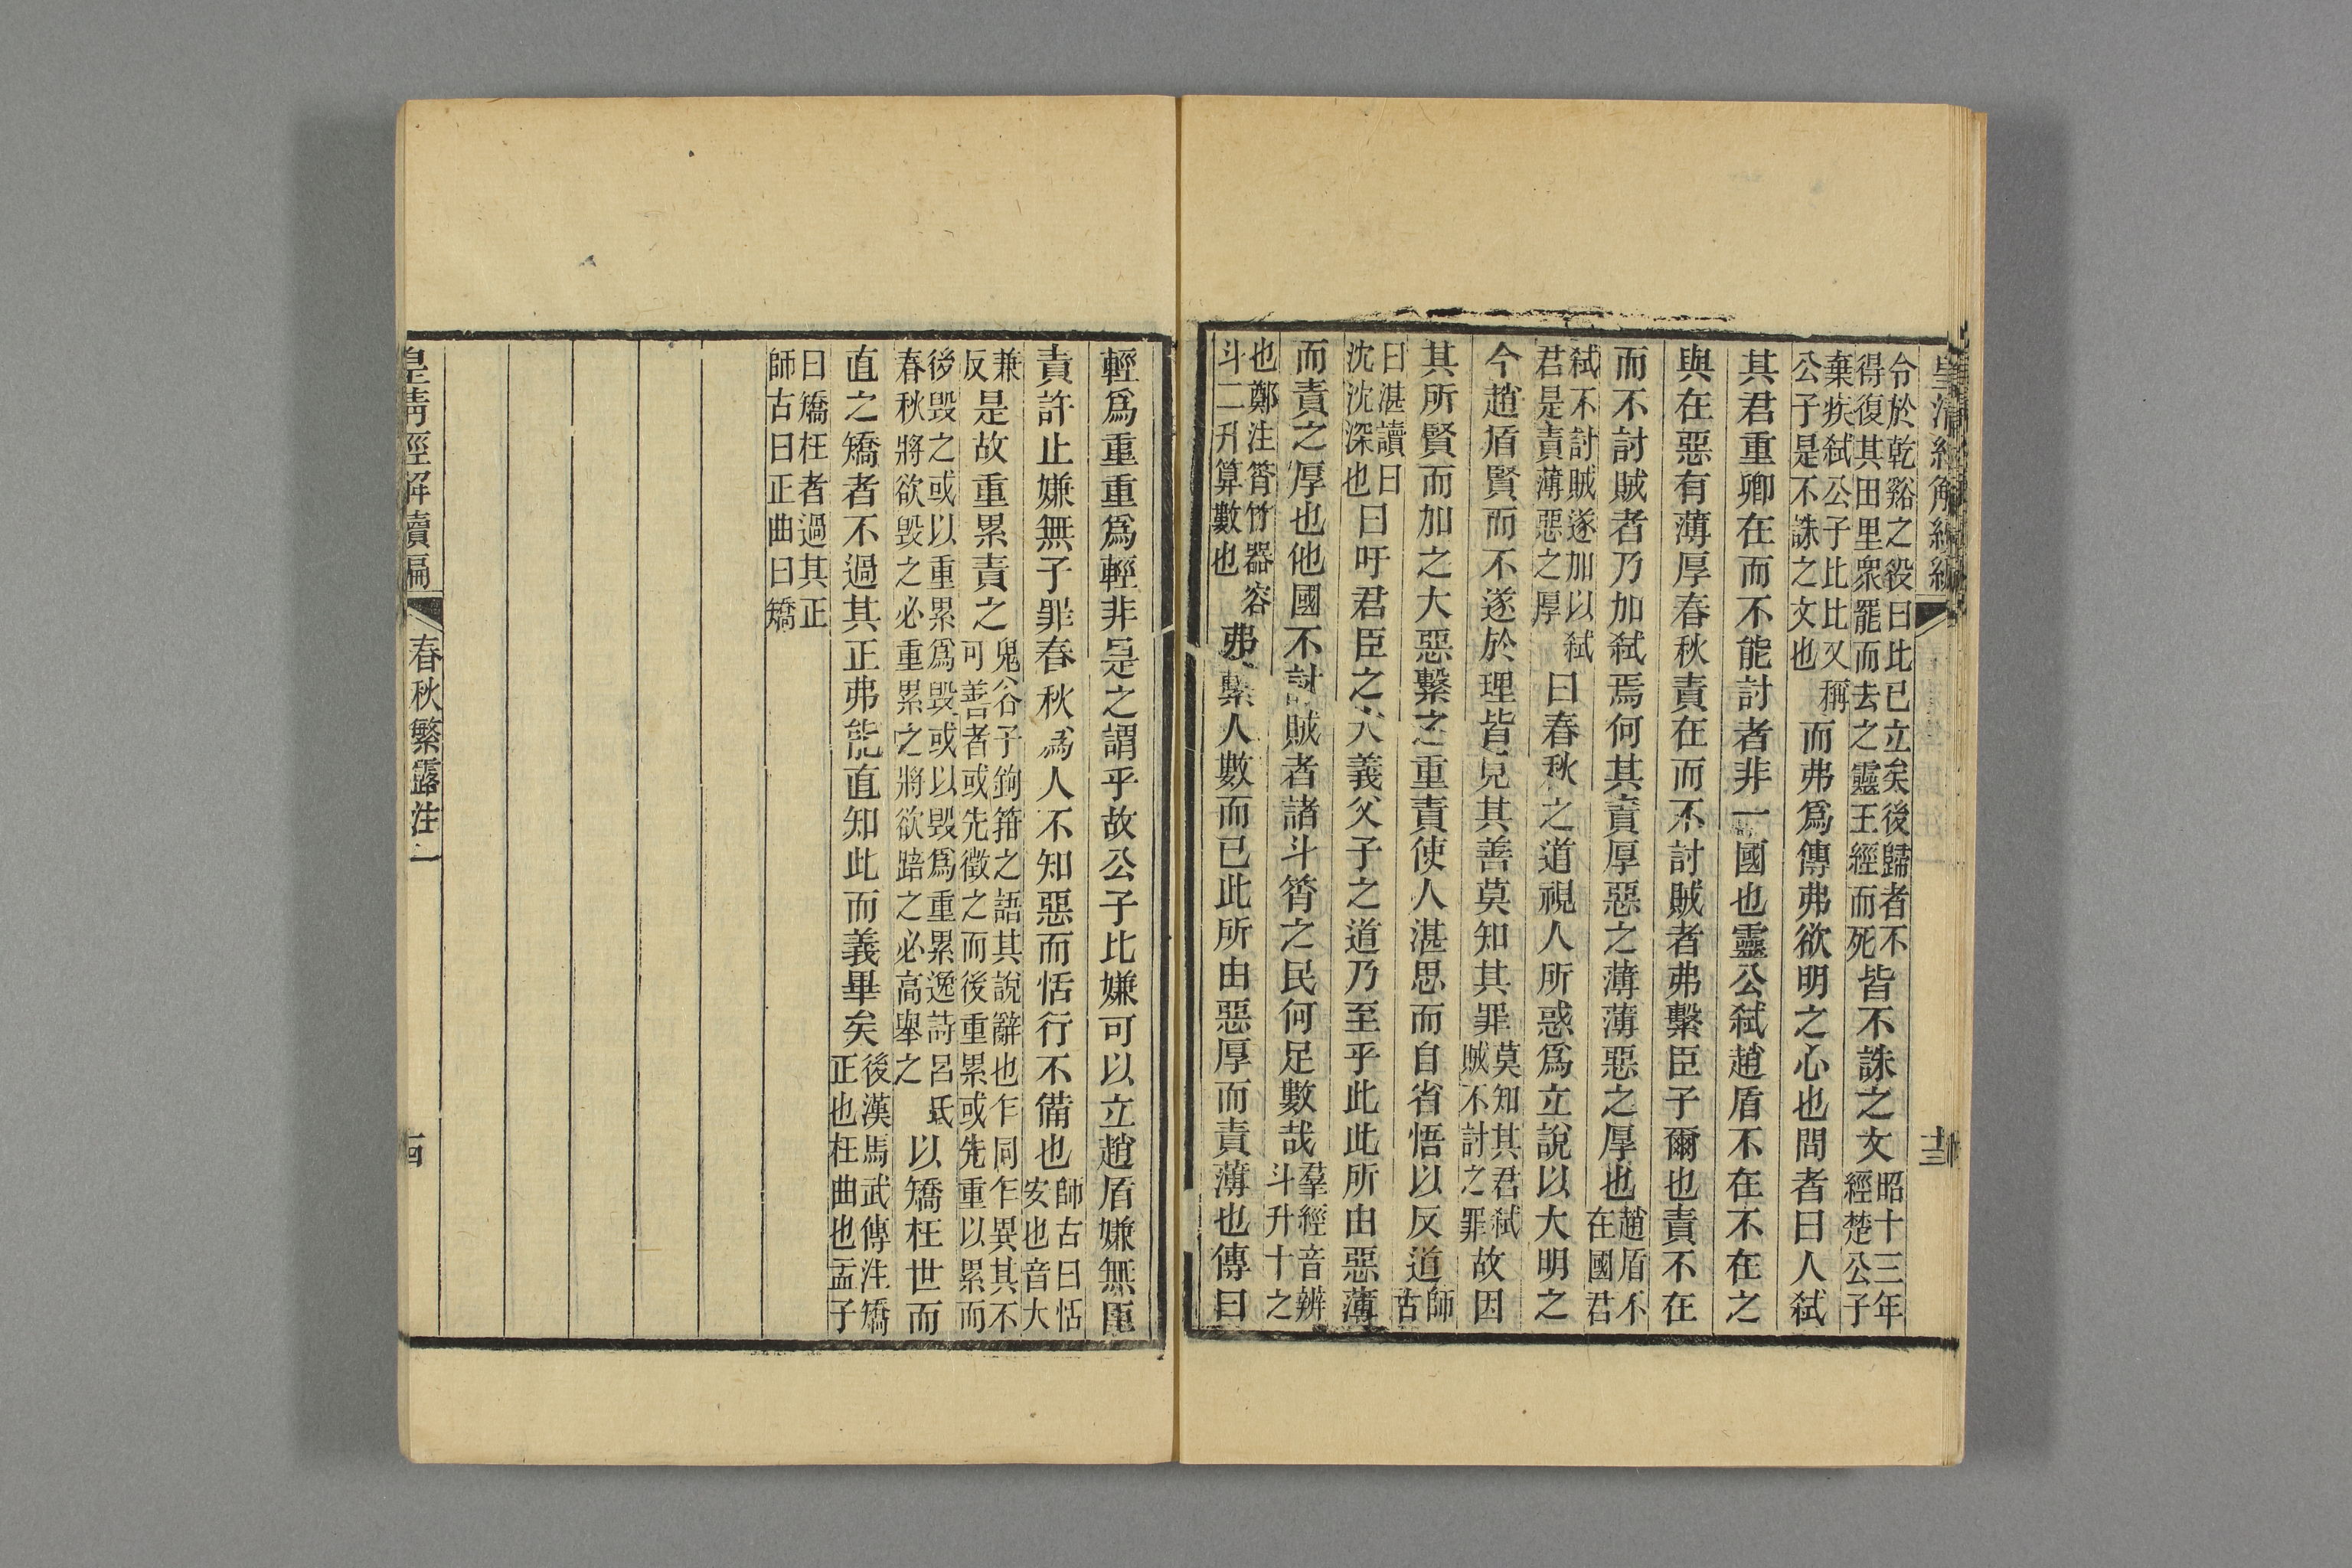 令於乾谿之役曰比已立矣後歸者不
得復其田里衆罷而去之靈王經而死
皆不誅之文
昭十三年
經楚公子
棄疾弑公子比比又稱
公子是不誅之文也
而弗爲傳弗欲明之心也問者曰人弑
其君重卿在而不能討者非一國也靈公弑趙盾不在不在之
與在惡有薄厚春秋責在而不討賊者弗繫臣子爾也責不在
而不討賊者乃加弑焉何其責厚惡之薄薄惡之厚也
趙盾不
在國君
弑不討賊遂加以弑
君是責薄惡之厚
曰春秋之道視人所惑爲立說以大明之
今趙盾賢而不遂於理皆見其善莫知其罪
莫知其君弑
賊不討之罪
故因
其所賢而加之大惡繫之重責使人湛思而自省悟以反道
師
古
曰湛讀曰
沈沈深也
曰吁君臣之大義父子之道乃至乎此此所由惡薄
而責之厚也他國不討賊者諸斗筲之民何足數哉
羣經音辨
斗升十之
也鄭注筲竹器容
斗二升算數也
弗繫人數而已此所由惡厚而責薄也傳曰
十三
輕爲重重爲輕非是之謂乎故公子比嫌可以立趙盾嫌無臣
責許止嫌無子罪春秋爲人不知惡而恬行不備也
師古曰恬
安也音大
兼
反
是故重累責之
鬼谷子鉤箝之語其說辭也乍同乍異其不
可善者或先徵之而後重累或先重以累而
後毀之或以重累爲毀或以毀爲重累逸詩呂氏
春秋將欲毀之必重累之將欲踣之必高舉之
以矯枉世而
直之矯者不過其正弗能直知此而義畢矣
後漢馬武傳注矯
正也枉曲也孟子
曰矯枉者過其正
師古曰正曲曰矯
皇清經解續編
春秋繁露注一
十四